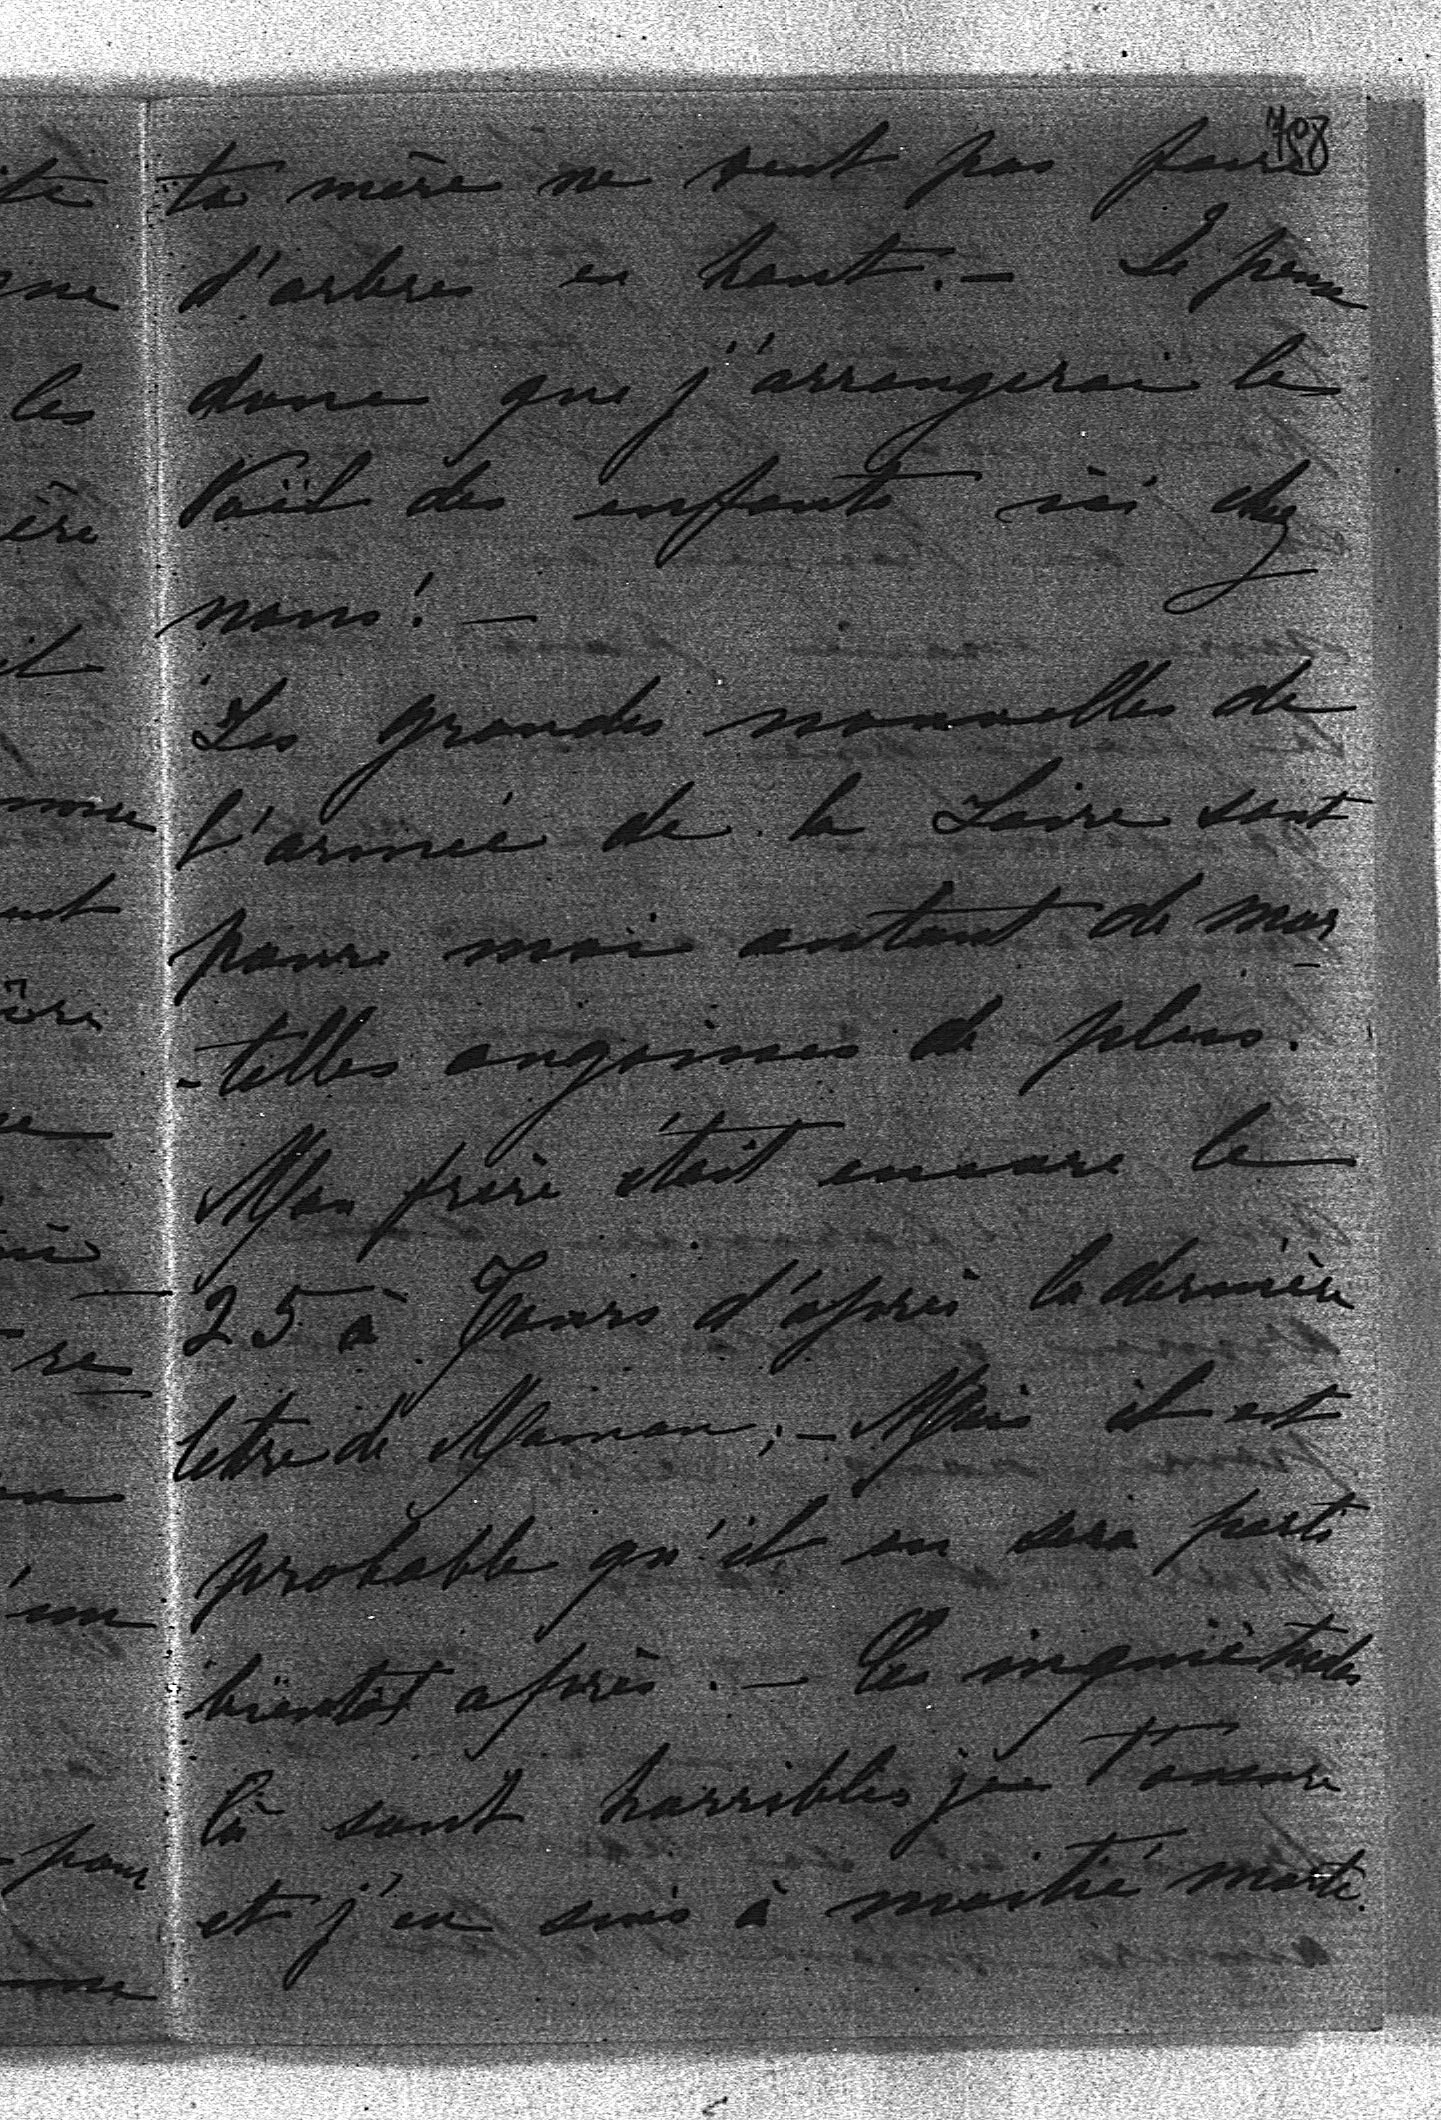 788
ta mère ne veut pas faire
d'arbres en haut. — Je pense
donc que j'arrangerai le
Noël des enfants ici chez
nous! —
Les grandes nouvelles de
l'armée de la Loire sont
pour moi autant de mor
-telles angoisses de plus.
Mon frère était encore le
25 à Tours d'après la dernière
lettre de Maman; — Mais il est
probable qu'il en sera parti
bientôt après. — Ces inquiètudes
là sont horribles je t'assure
et j'en suis à moitié morte.
ite
les
ère
it
ant
re
pour